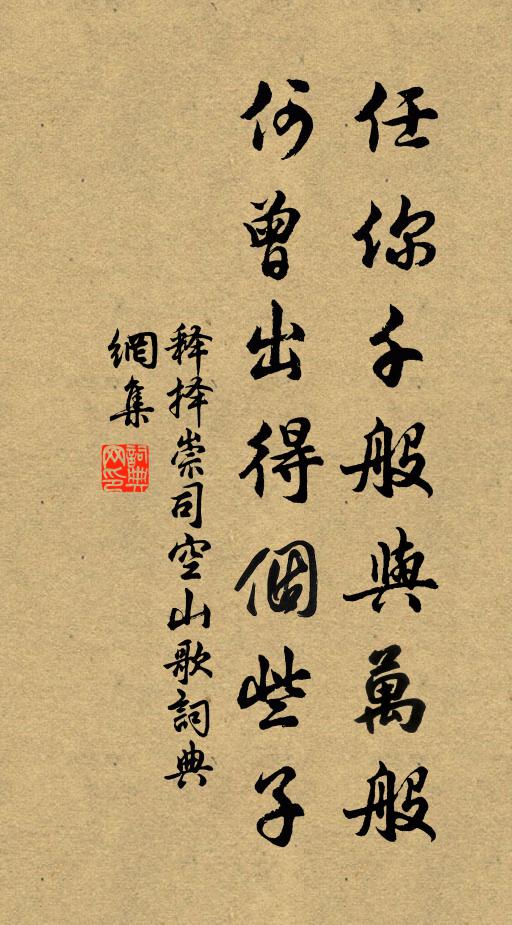 任你千般與萬般
何曾出得個些子
释择崇司空山歌詞典
網集
詞典
网印